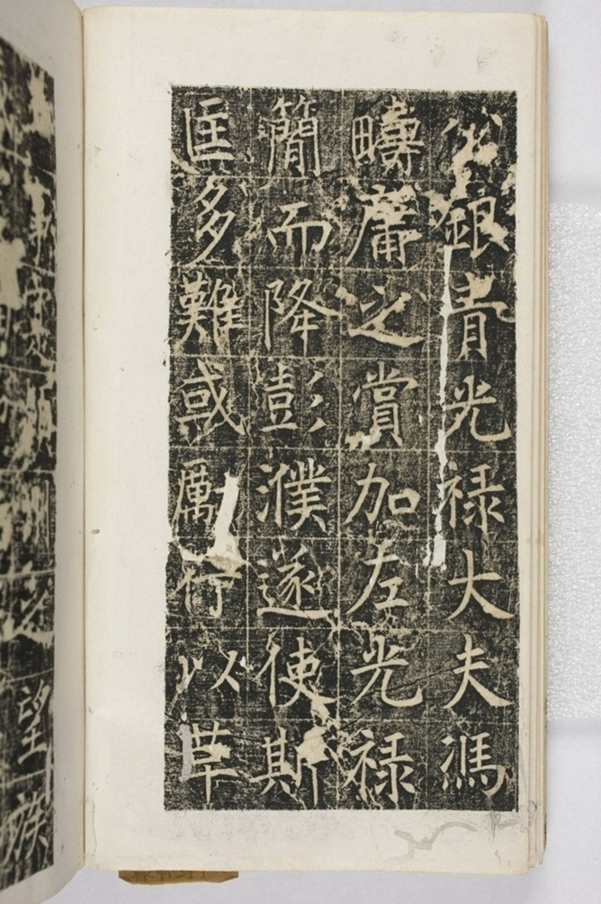 銀青光禄大夫馮
疇庸之賞加左光禄
簡而降彭濮遂使斯
匡多難或厲行以草
之望族